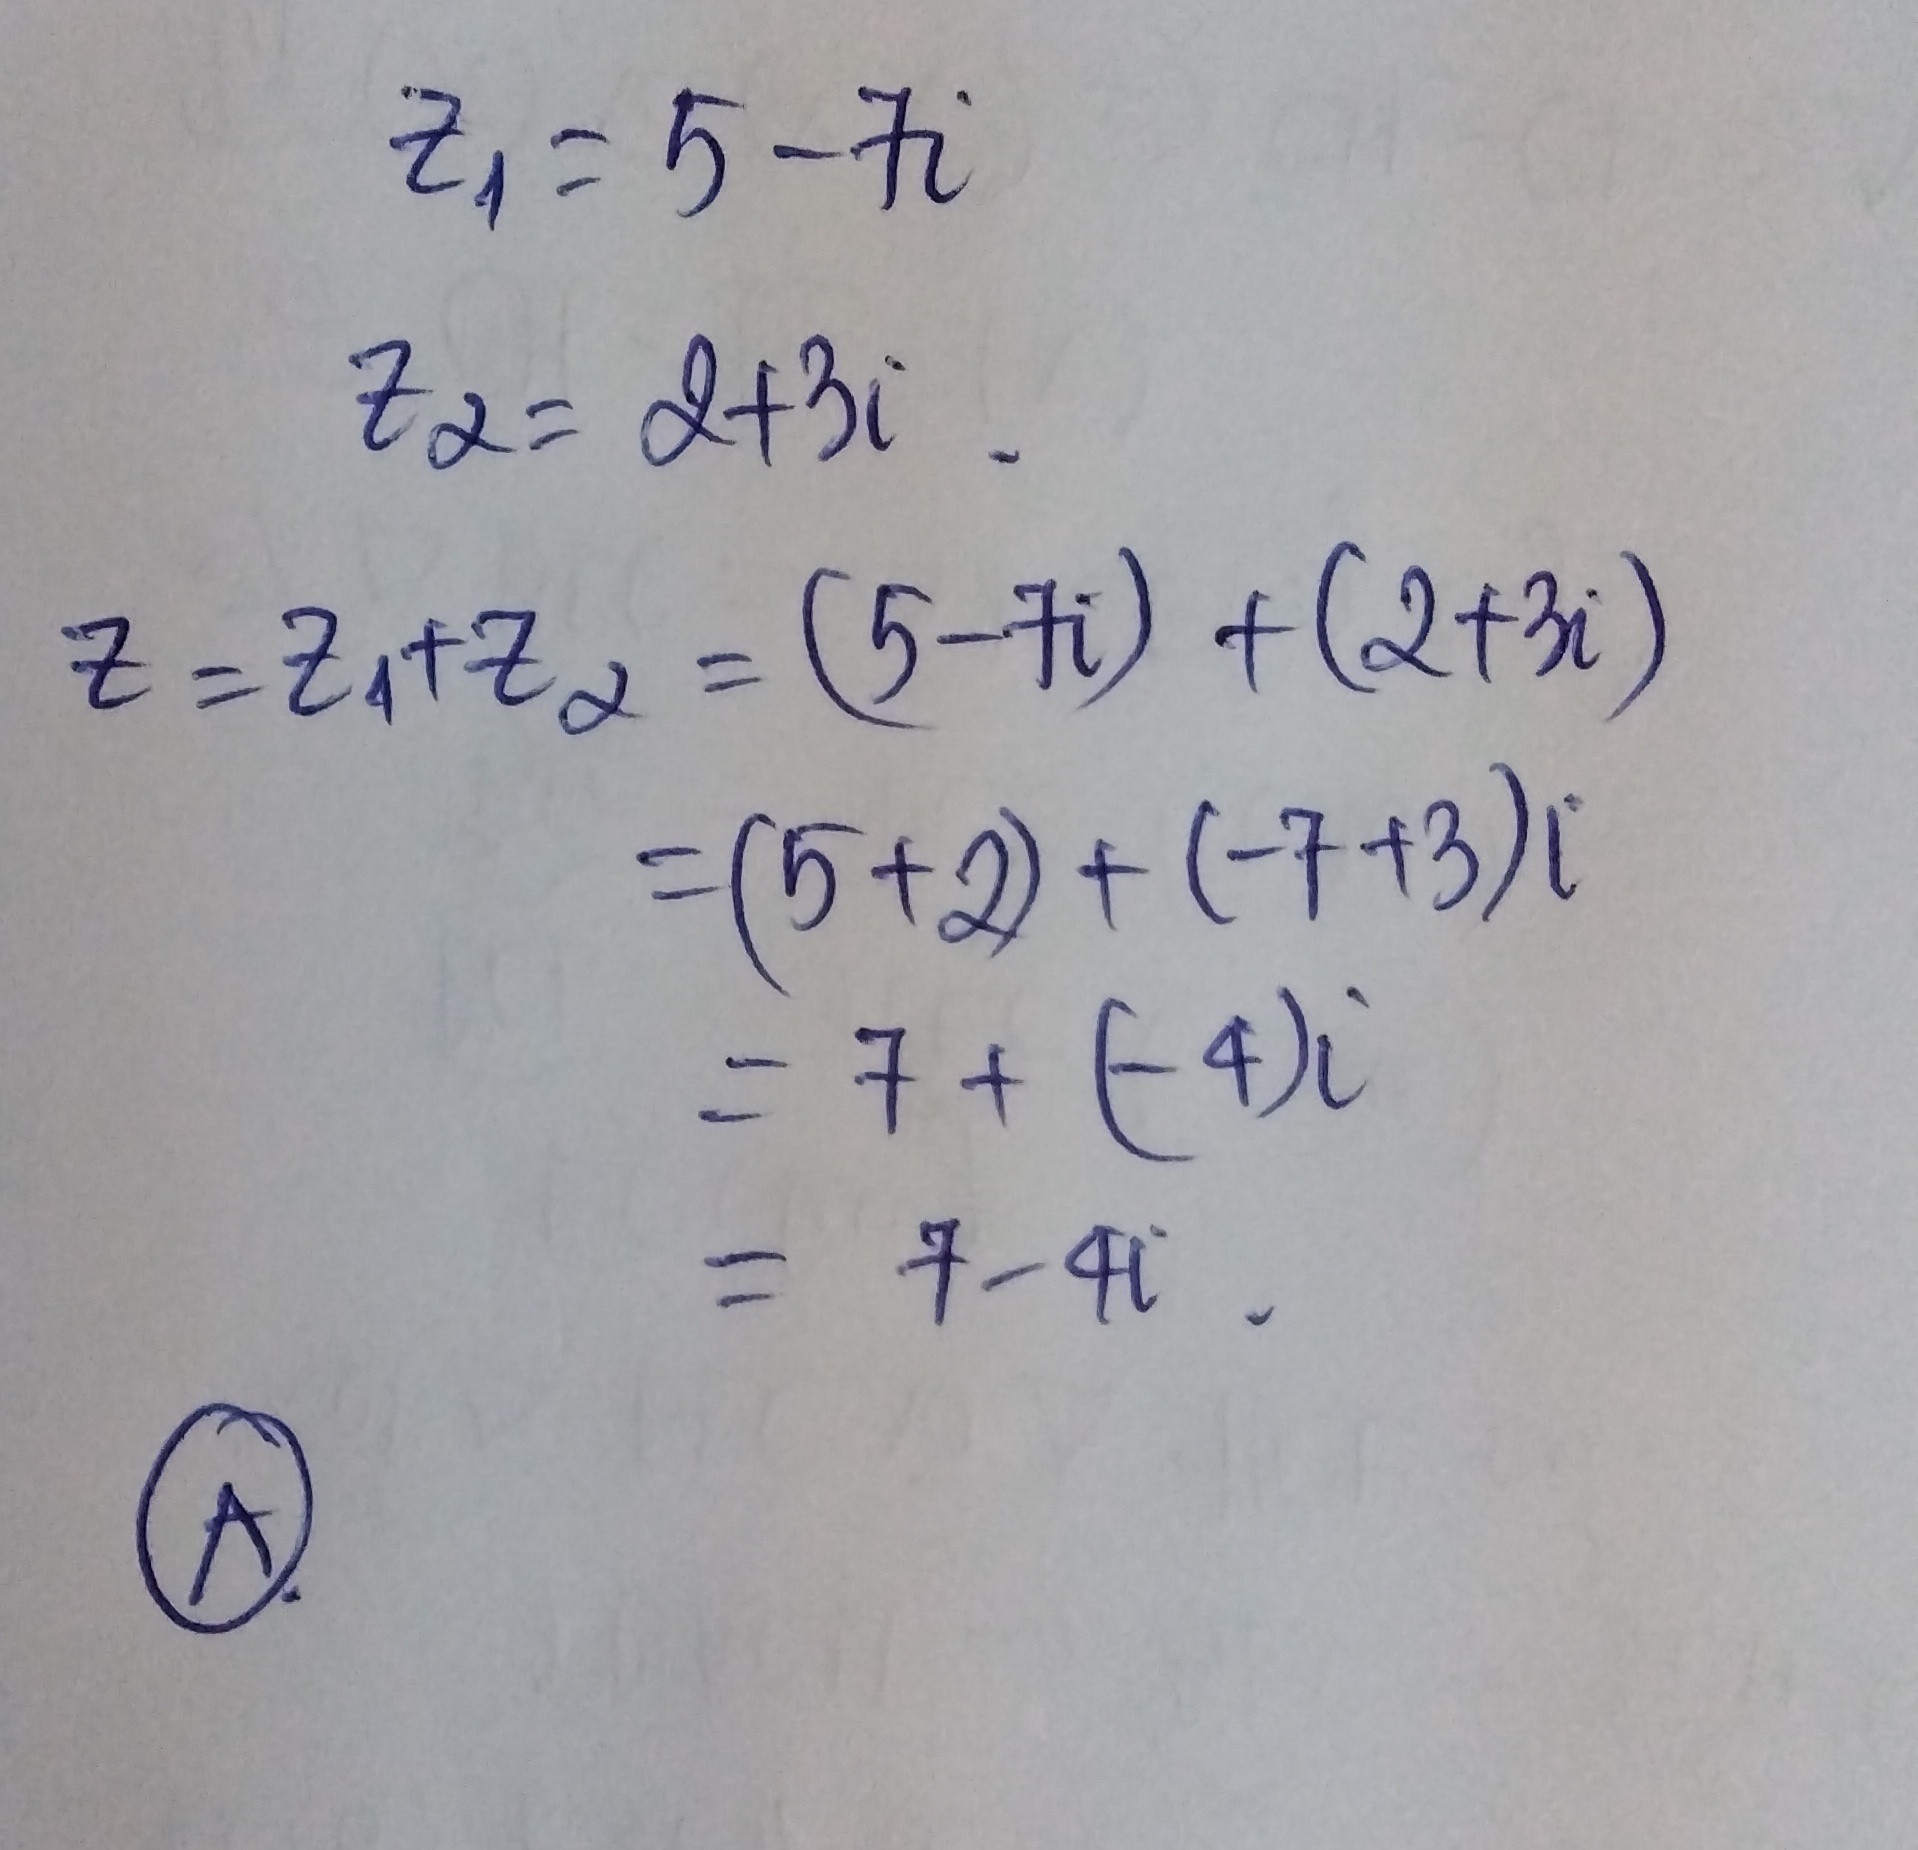 z₁ = 5 - 7i
z₂ = 2+3i .
z = z₁+z₂ = (5-7i) + (2+3i)
= (5+2) + (-7+3)i
= 7 + (-4)i
= 7 - 4i .
A.